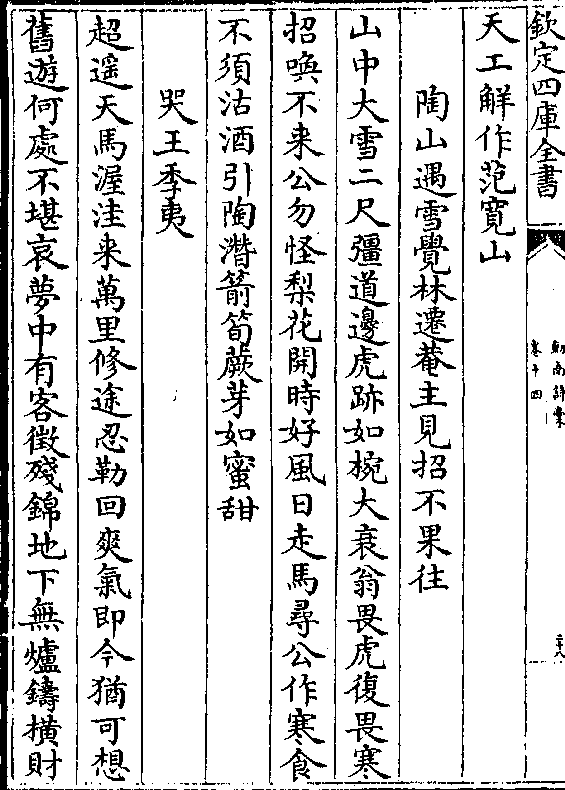 欽定四庫全書
劒南詩槀
卷十四
二十八
天工解作范寛山
陶山遇雪覺林遷菴主見招不果往
山中大雪二尺彊道邊虎跡如椀大衰翁畏虎復畏寒
招喚不来公勿怪梨花開時好風日走馬尋公作寒食
不須沽酒引陶潛箭筍蕨芽如蜜甜
哭王季夷
超遥天馬渥洼来萬里修途忍勒回爽氣即今猶可想
舊遊何處不堪哀夢中有客徴殘錦地下無爐鑄橫財